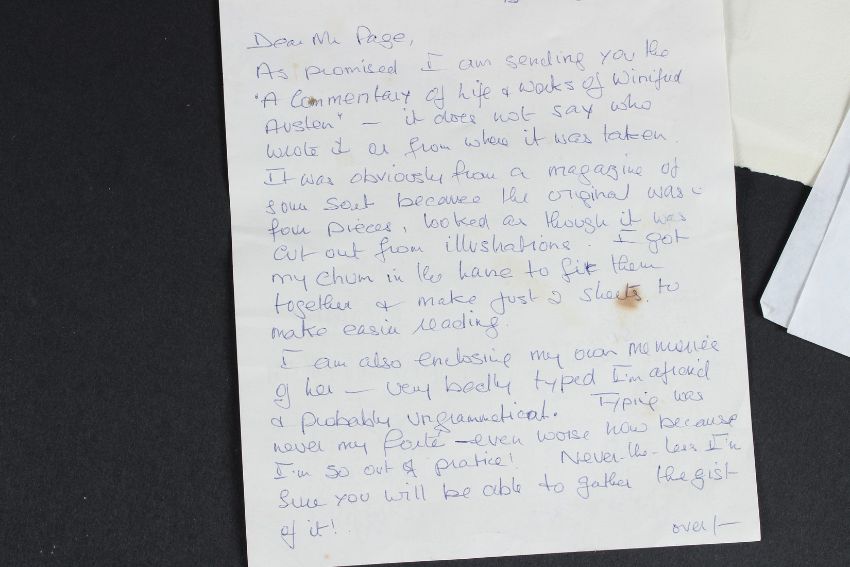 Dear Mr Page,
As promised I am sending you the
"A Commentary of Life & Works of Winifred
Austen" — it does not say who
wrote it or from where it was taken.
It was obviously from a magazine of
some sort because the original was
four pieces, looked as though it was
cut out from illustrations. I got
my chum in the lane to fix them
together & make just 2 sheets to
make easier reading.
I am also enclosing my own memories
of her — very badly typed I'm afraid
& probably ungrammatical. Typing was
never my forté — even worse now because
I'm so out of pratice! Never-the-less I'm
sure you will be able to gather the gist
of it!
over/—